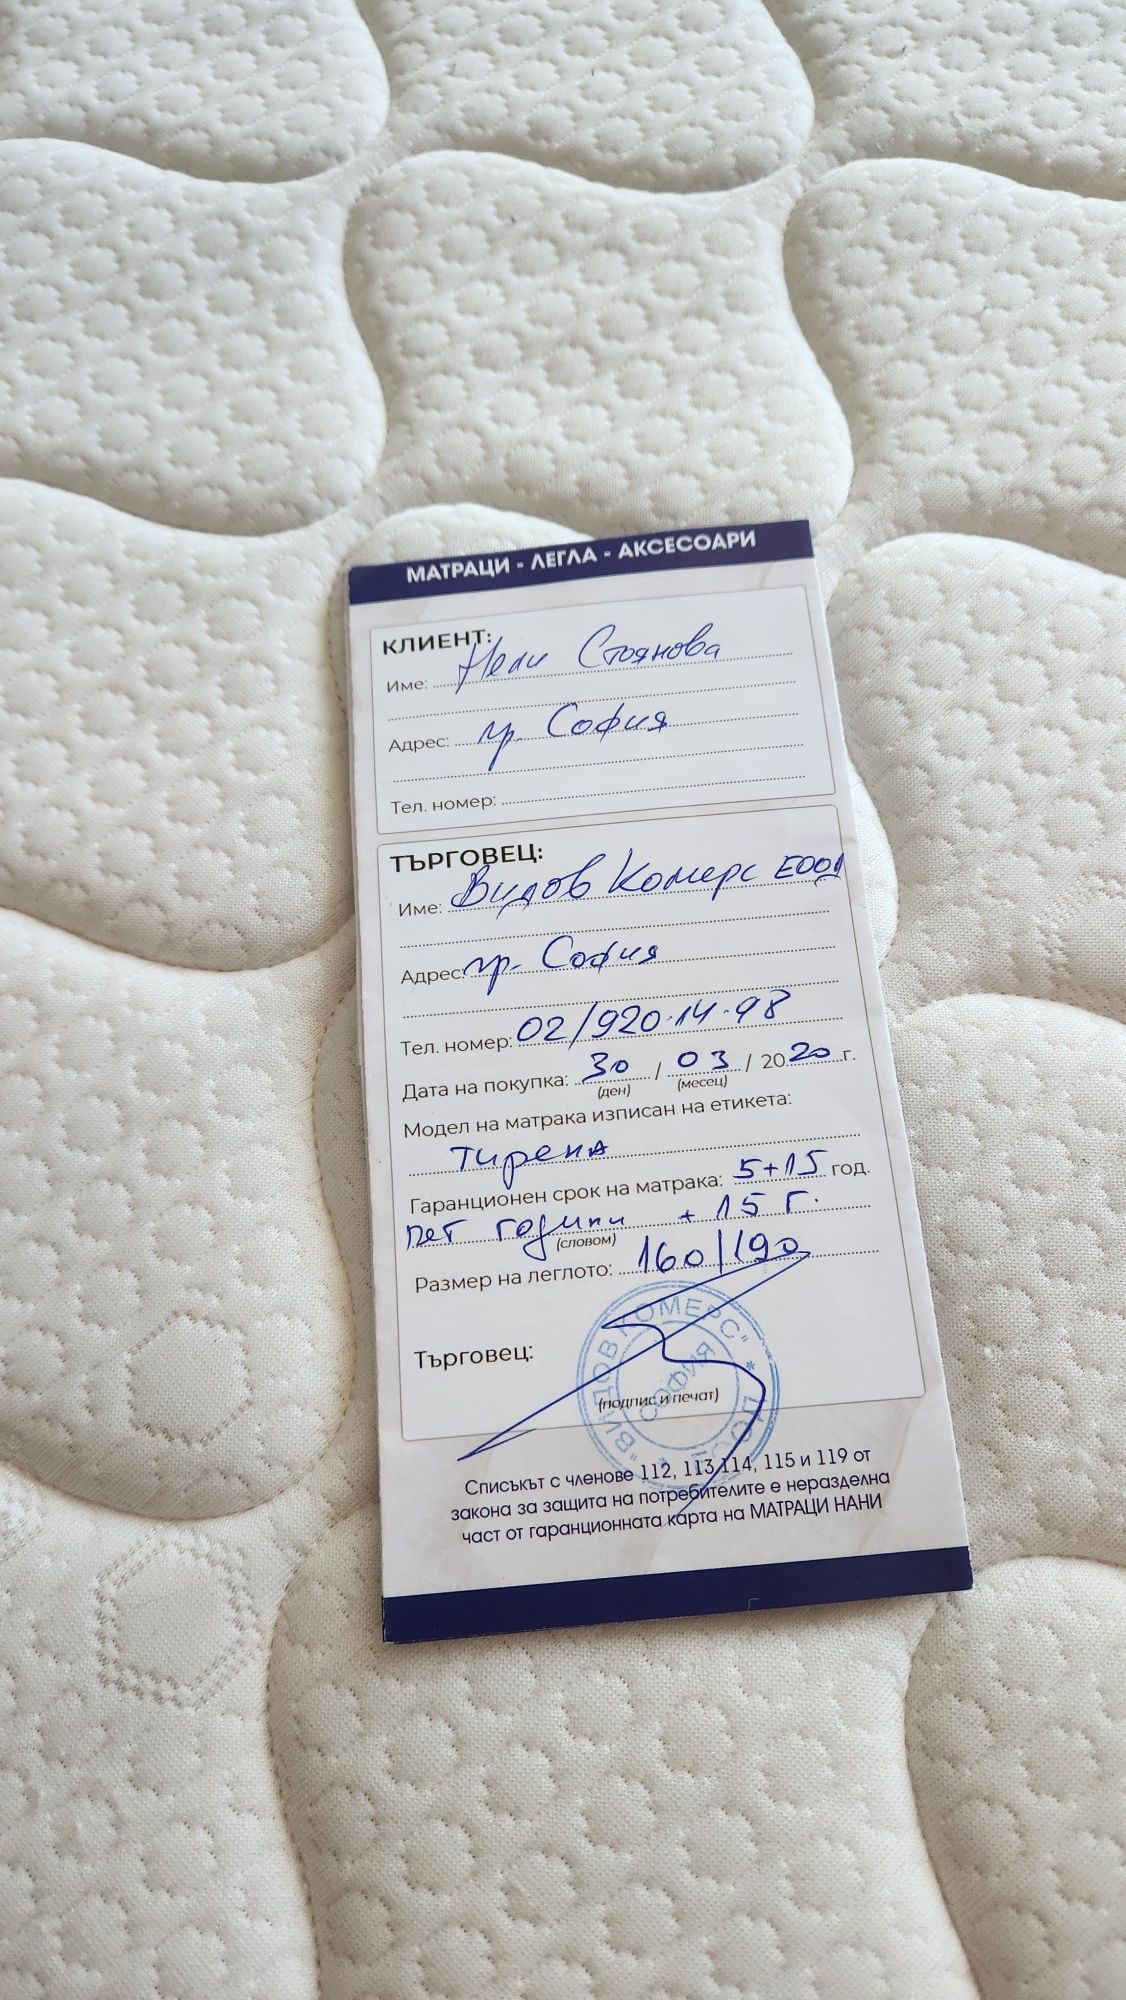 МАТРАЦИ - ЛЕГЛА - АКСЕСОАРИ
КЛИЕНТ:
Име: Нели Стоянова
Адрес: гр. София
Тел. номер:
ТЪРГОВЕЦ:
Име: Видов Комерс ЕООД
Адрес: гр. София
Тел. номер: 02/920.14.98
Дата на покупка: 30 / 03 / 2020 г.
(ден) (месец)
Модел на матрака изписан на етикета:
Тирена
Гаранционен срок на матрака: 5+15 год.
пет години + 15 г.
(словом)
Размер на леглото: 160/190
"ВИДОВ КОМЕРС" * ЕООД *
СОФИЯ
Търговец:
(подпис и печат)
Списъкът с членове 112, 113, 114, 115 и 119 от
закона за защита на потребителите е неразделна
част от гаранционната карта на МАТРАЦИ НАНИ